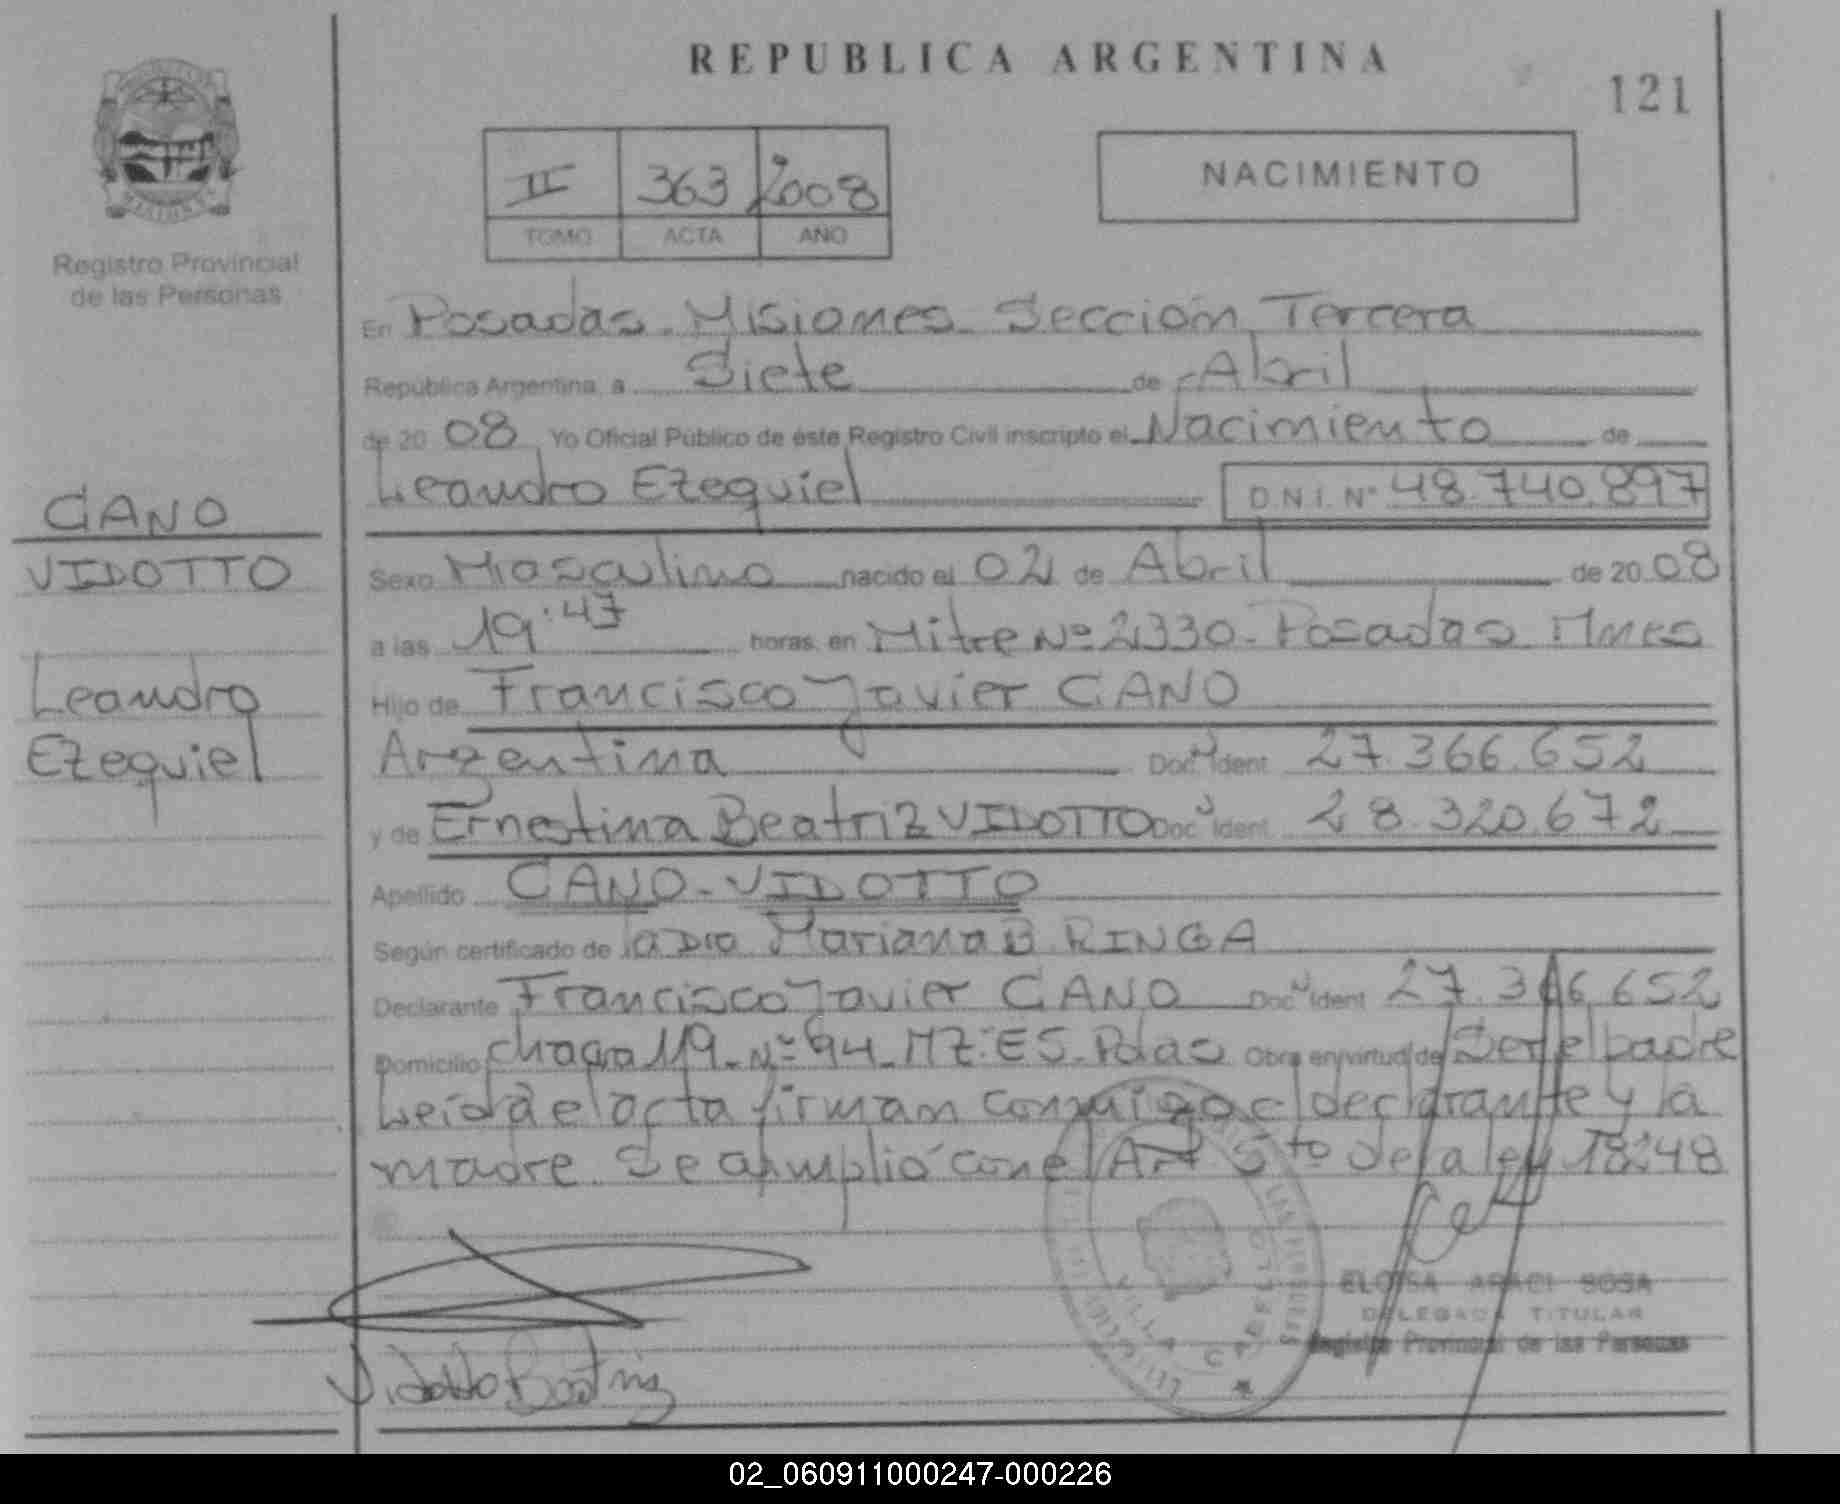 REPUBLICA ARGENTINA
121
II 363 2008
TOMO ACTA AÑO
NACIMIENTO
MISIONES
Registro Provincial
de las Personas
En Posadas Misiones Sección Tercera
República Argentina, a Siete de Abril
de 2008 Yo Oficial Público de éste Registro Civil inscripto el Nacimiento de
Leandro Ezequiel D.N.I. Nº 48.740.897
CANO
VIDOTTO
Leandro
Ezequiel
Sexo Masculino nacido el 02 de Abril de 2008
a las 19:47 horas, en Mitre Nº 2330 - Posadas Mnes
Hijo de Francisco Javier CANO
Argentina Doc. Ident 27.366.652
y de Ernestina Beatriz VIDOTTO Doc. Ident 28.320.672
Apellido CANO - VIDOTTO
Según certificado de la Dra Mariana B RINGA
Declarante Francisco Javier CANO Doc. Ident 27.366.652
Domicilio chacra 119 - Nº 94 - MZ: E5 - Pdas Obra en virtud de Ser el padre
Leída el acta firman conmigo el declarante y la
madre. Se amplió con el Art 5to de la ley 18248
VILLA CABELLO
ELOISA ARACI SOSA
DELEGADA TITULAR
Registro Provincial de las Personas
Vidotto Beatriz
02_060911000247-000226